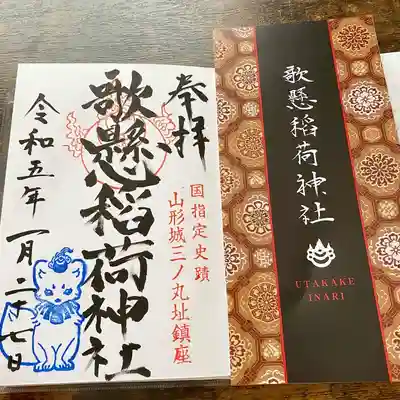 奉拝
国指定史蹟
山形城三ノ丸址鎮座
歌懸稲荷神社
令和五年一月二十七日
歌懸稲荷神社
UTAKAKE
INARI